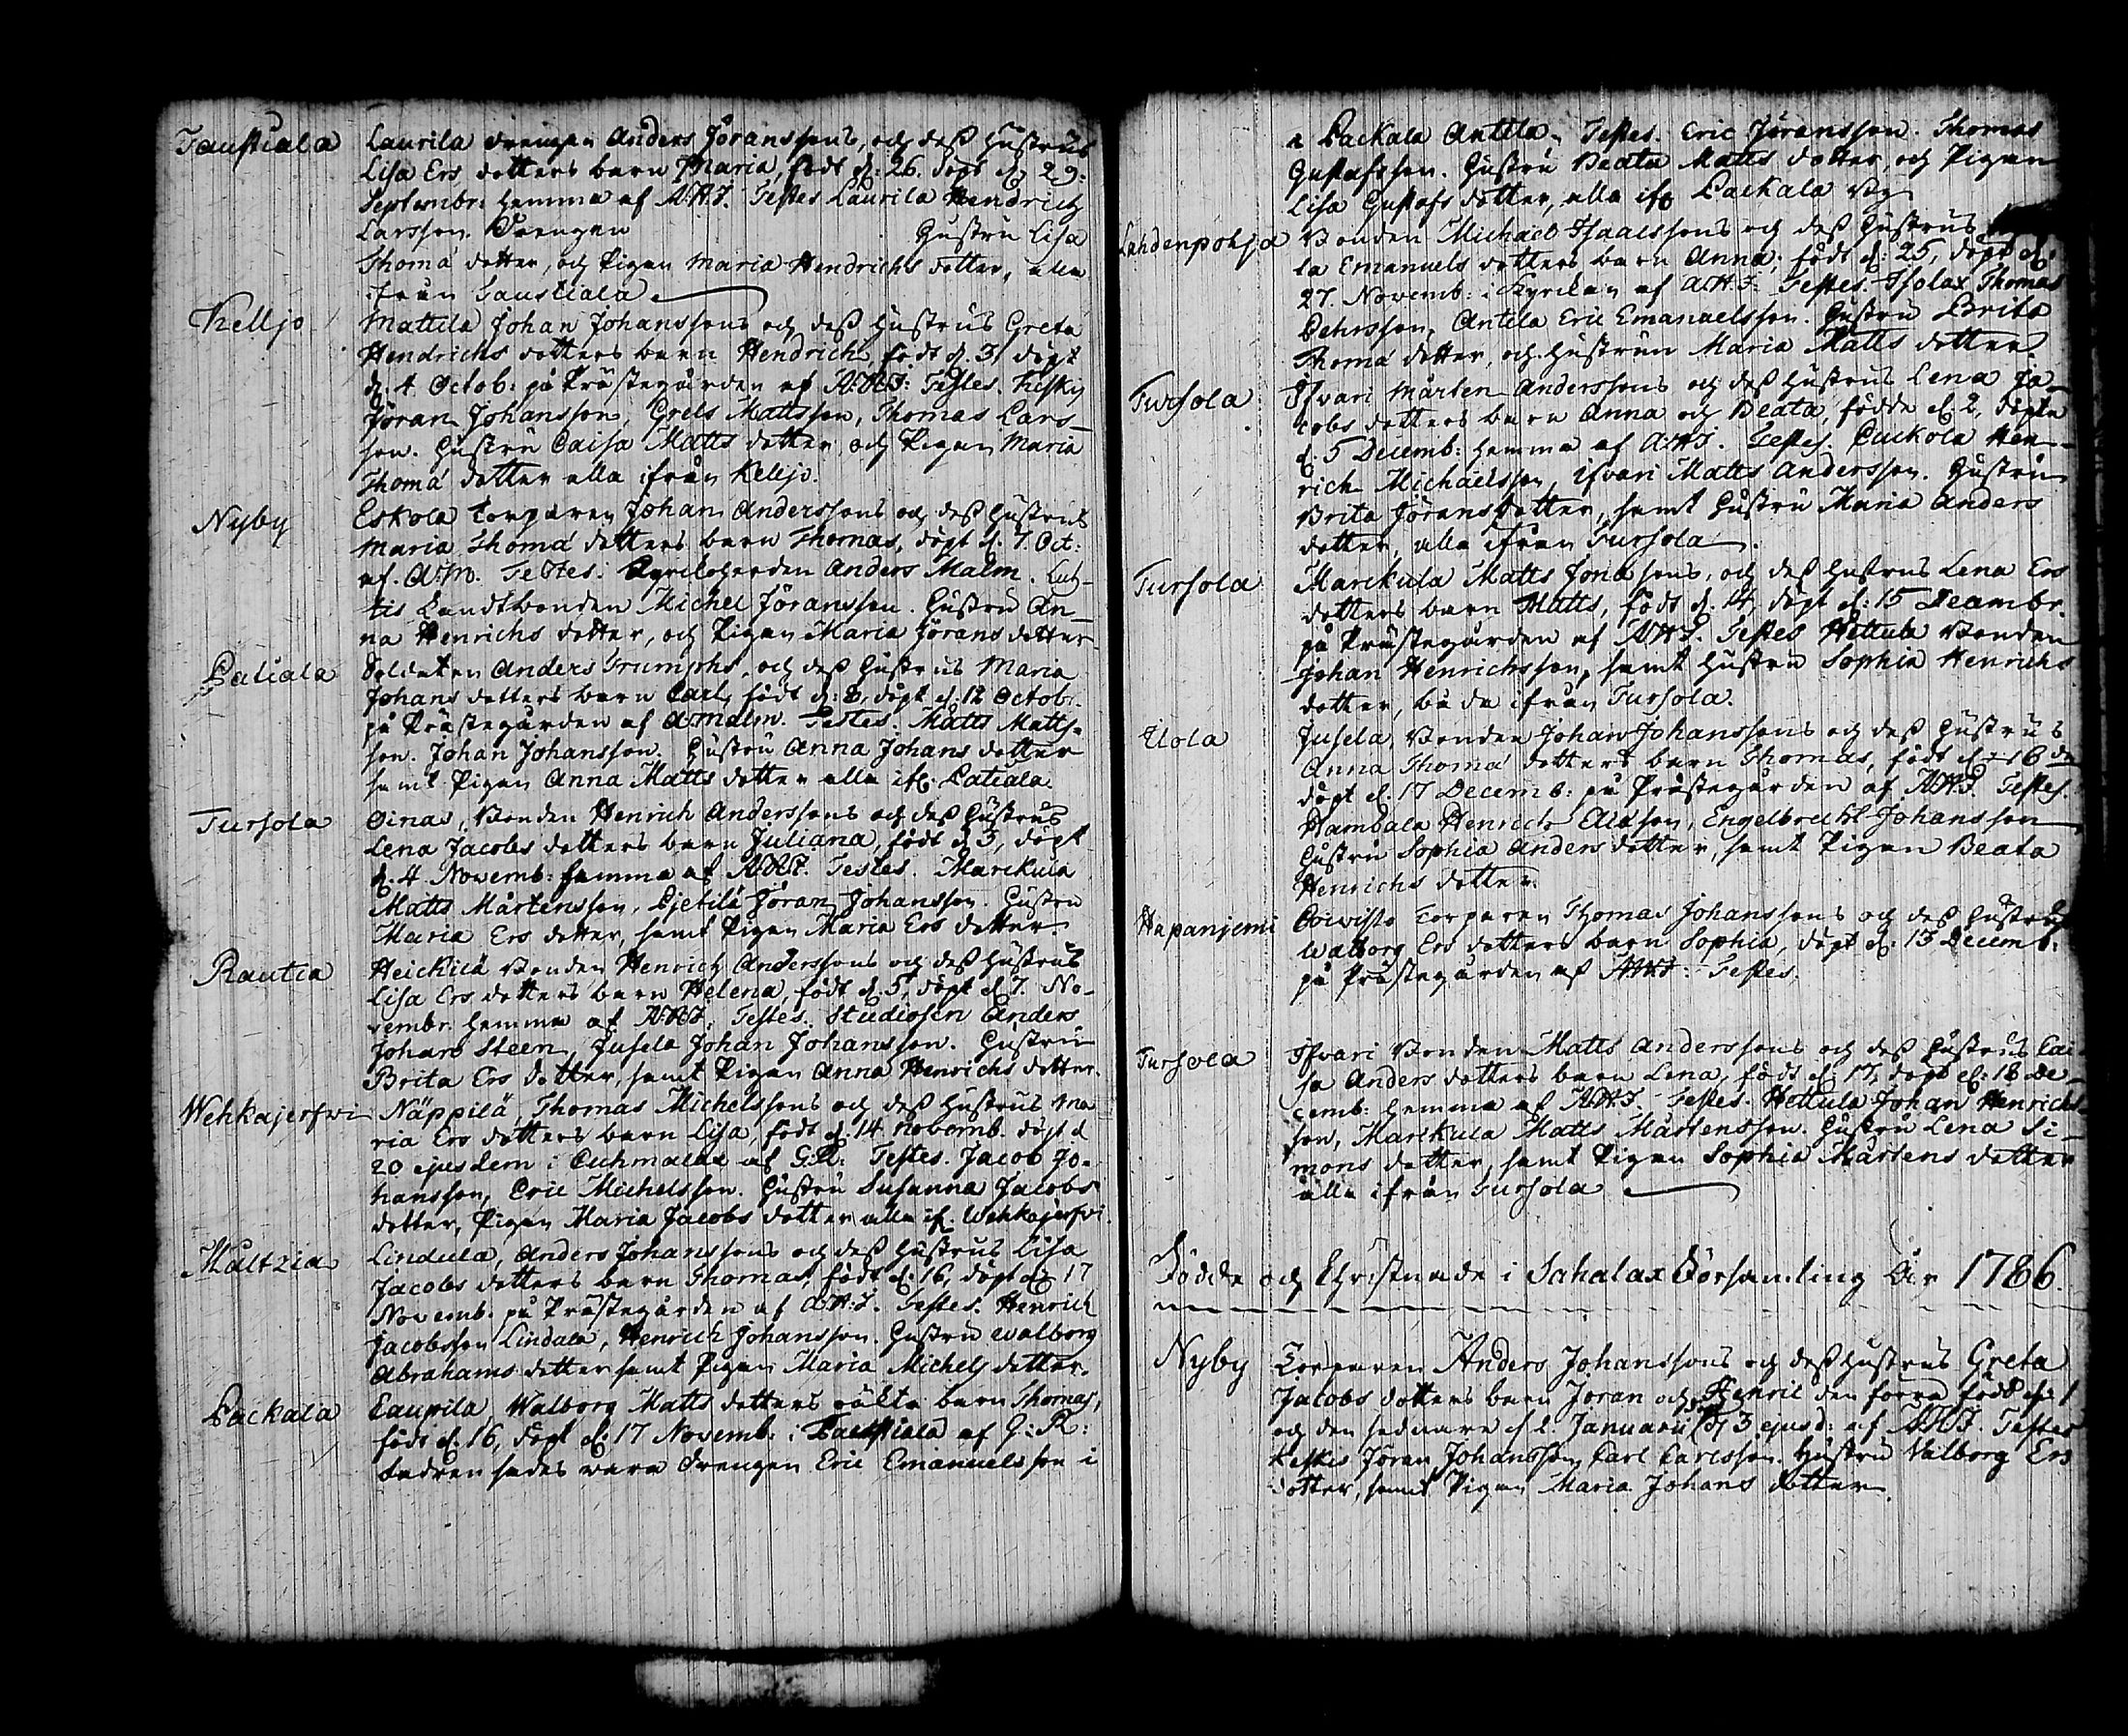 Taustiala Laurila drengen Anders Jöranssons, och dess hustrus
Lisa Ers dotters barn Maria, födt d: 26. döpt d. 29:
Septembr: hemma af A:H:F. Testes Laurila Hendrich
Larsson. Drengen Hustru Lisa
Thomæ dotter, och Pigan Maria Hendrichs dotter, alla
ifrån Taustiala
Kelljo Mattila Johan Johanssons och dess hustrus Greta
Hendrichs dotters barn Hendrich, födt d. 3, döpt
d: 4 Octob: på Prästegården af A:H:F: Testes. Kesky
Jöran Johansson, Grels Mattsson, Thomas Lars-
son. Hustru Caisa Matts dotter och Pigan Maria
Thomæ dotter alla ifrån Kelljo.
Nyby Eskola Torparen Johan Anderssons och dess hustrus
Maria Thomæ dotters barn Thomas, döpt d. 7. Oct:
af. A:M. Testes. Kyrkoherden Anders Malm.
tis Landtbonden Michel Jöransson. Hustru An-
na Henrichs dotter, och Pigan Maria Jörans dotter
Patiala Soldaten Anders Trumphs, och dess hustrus Maria
Johans dotters barn Carl, födt d: 8, döpt d. 12 Octobr.
på Prästegården af A:Malm. Testes. Matts Matts-
son. Johan Johansson. Hustru Anna Johans dotter
samt Pigan Anna Matts dotter alla ifr. Patiala.
Tursola Oinas, Bonden Henrich Anderssons och dess hustrus
Lena Jacobs dotters barn Juliana, födt d. 3, döpt
d. 4 Novemb: hemma af A:H:F. Testes. Marckula
Matts Mårtensson, Pjetilä Jöran Johansson. Hustru
Maria Ers dotter, samt Pigan Maria Ers dotter.
Rautia Heickilä Bonden Henrich Anderssons och dess hustrus
Lisa Ers dotters barn Helena, födt d. 5, döpt d 7. No-
vembr. hemma af A:H:F. Testes. Studiosen Anders
Johan Steen, Jusela Johan Johansson. Hustru
Brita Ers dotter, samt Pigan Anna Henrichs dotter.
Wehkajerfwi Näppilä, Thomas Michelssons och dess hustrus Ma
ria Ers dotters barn Lisa, födt d. 14 Novemb. döpt d
20 ejusdem i Cuhmalax af G:R: Testes. Jacob Jo-
hansson, Eric Michelsson. Hustru Susanna Jacobs
dotter, Pigan Maria Jacobs dotter alla ifr. Wehkajerfvi.
Maltzia Lindula, Anders Johanssons och dess hustrus Lisa
Jacobs dotters barn Thomas, födt d. 16, döpt d. 17
Novemb. på Prästegården af A:H:F. Testes. Henrich
Jacobsson Lindala, Henrich Johansson. Hustru Walborg
Abrahams dotter samt Pigan Maria Michels dotter.
Packala Caupila, Walborg Matts dotters oäkta barn Thomas,
födt d. 16, döpt d: 17 Novemb. i af G:R:
fadren sades vara Drengen Eric Emanuelsson i
a Packala Anttla. Testes. Eric Jöransson. Thomas
Gustafsson. Hustru Beata Matts dotter, och Pigan
Lisa Gustafs dotter, alla ifr Packala By
Lahdenpohja Bonden Michael Isaacssons och dess hustrus
la Emanuels dotters barn Anna, födt d: 25, döpt d:
27. Novemb: i Kyrckan af A:H:F: Testes. Isolax Thomas
Pehrsson, Antila Eric Emanuelsson. Hustru Brita
Thomæ dotter, och hustrun Maria Matts dotter
Tursola Isvari Mårten Anderssons och dess hustrus Lena Ja
cobs dotters barn Anna och Beata, födde d. 2, döpte
d. 5 Decemb: hemma af A:H:F. Testes, Cuckola Hen-
rich Michaelsson, Isvari Matts Andersson. Hustru
Brita Jörans dotter, samt hustru Maria Anders
dotter, alla ifrån Tursola.
Tursola Marckula Matts Jonæsons, och dess hustrus Lena Ers
dotters barn Matts, födt d. 14, döpt d: 15 Decembr.
på Prästegården af A:H:F. Testes Hettula Bonden
Johan Henrichsson, samt hustru Sophia Henrichs
dotter, båda ifrån Tursola.
Uola Jusela, Bonden Johan Johanssons och dess hustrus
Anna Thomæ dotters barn Thomas, födt d. 16 de
döpt d. 17 Decemb: på Prästegården af A:H:F. Testes.
Hambala Henrich Claësson, Engelbrecht Johansson
hustru Sophia Anders dotter, samt Pigan Beata
Henrichs dotter.
Hapanjemi Coivisto Torparen Thomas Johanssons och dess hustrus
Walborg Ers dotters barn Sophia, döpt d: 13 Decemb.
på Prästegården af A:H:F: Testes.
Tursola Isvari Bonden Matts Anderssons och dess hustrus Cai
sa Anders dotters barn Lena, födt d 17, döpt d: 18 De-
cemb: hemma af A:H:F. Testes. Hettula Johan Henrichs
son, Marckula Matts Mårtensson. Hustru Lena Si-
mons dotter, samt Pigan Sophia Mårtens dotter
alla ifrån Tursola
Födde och Christnade i Sahalax Församling År 1786.
Nyby Torparen Anders Johanssons och dess hustrus Greta
Jacobs dotters barn Joran och Henric den förra född d: 1
och den sednare d 2. Januarii 3 ejusd: af A:H:F. Testes
Keskis Jöran Johansson, Carl Carlsson. Hustru Valborg Ers
dotter, samt Pigan Maria Johans dotter.